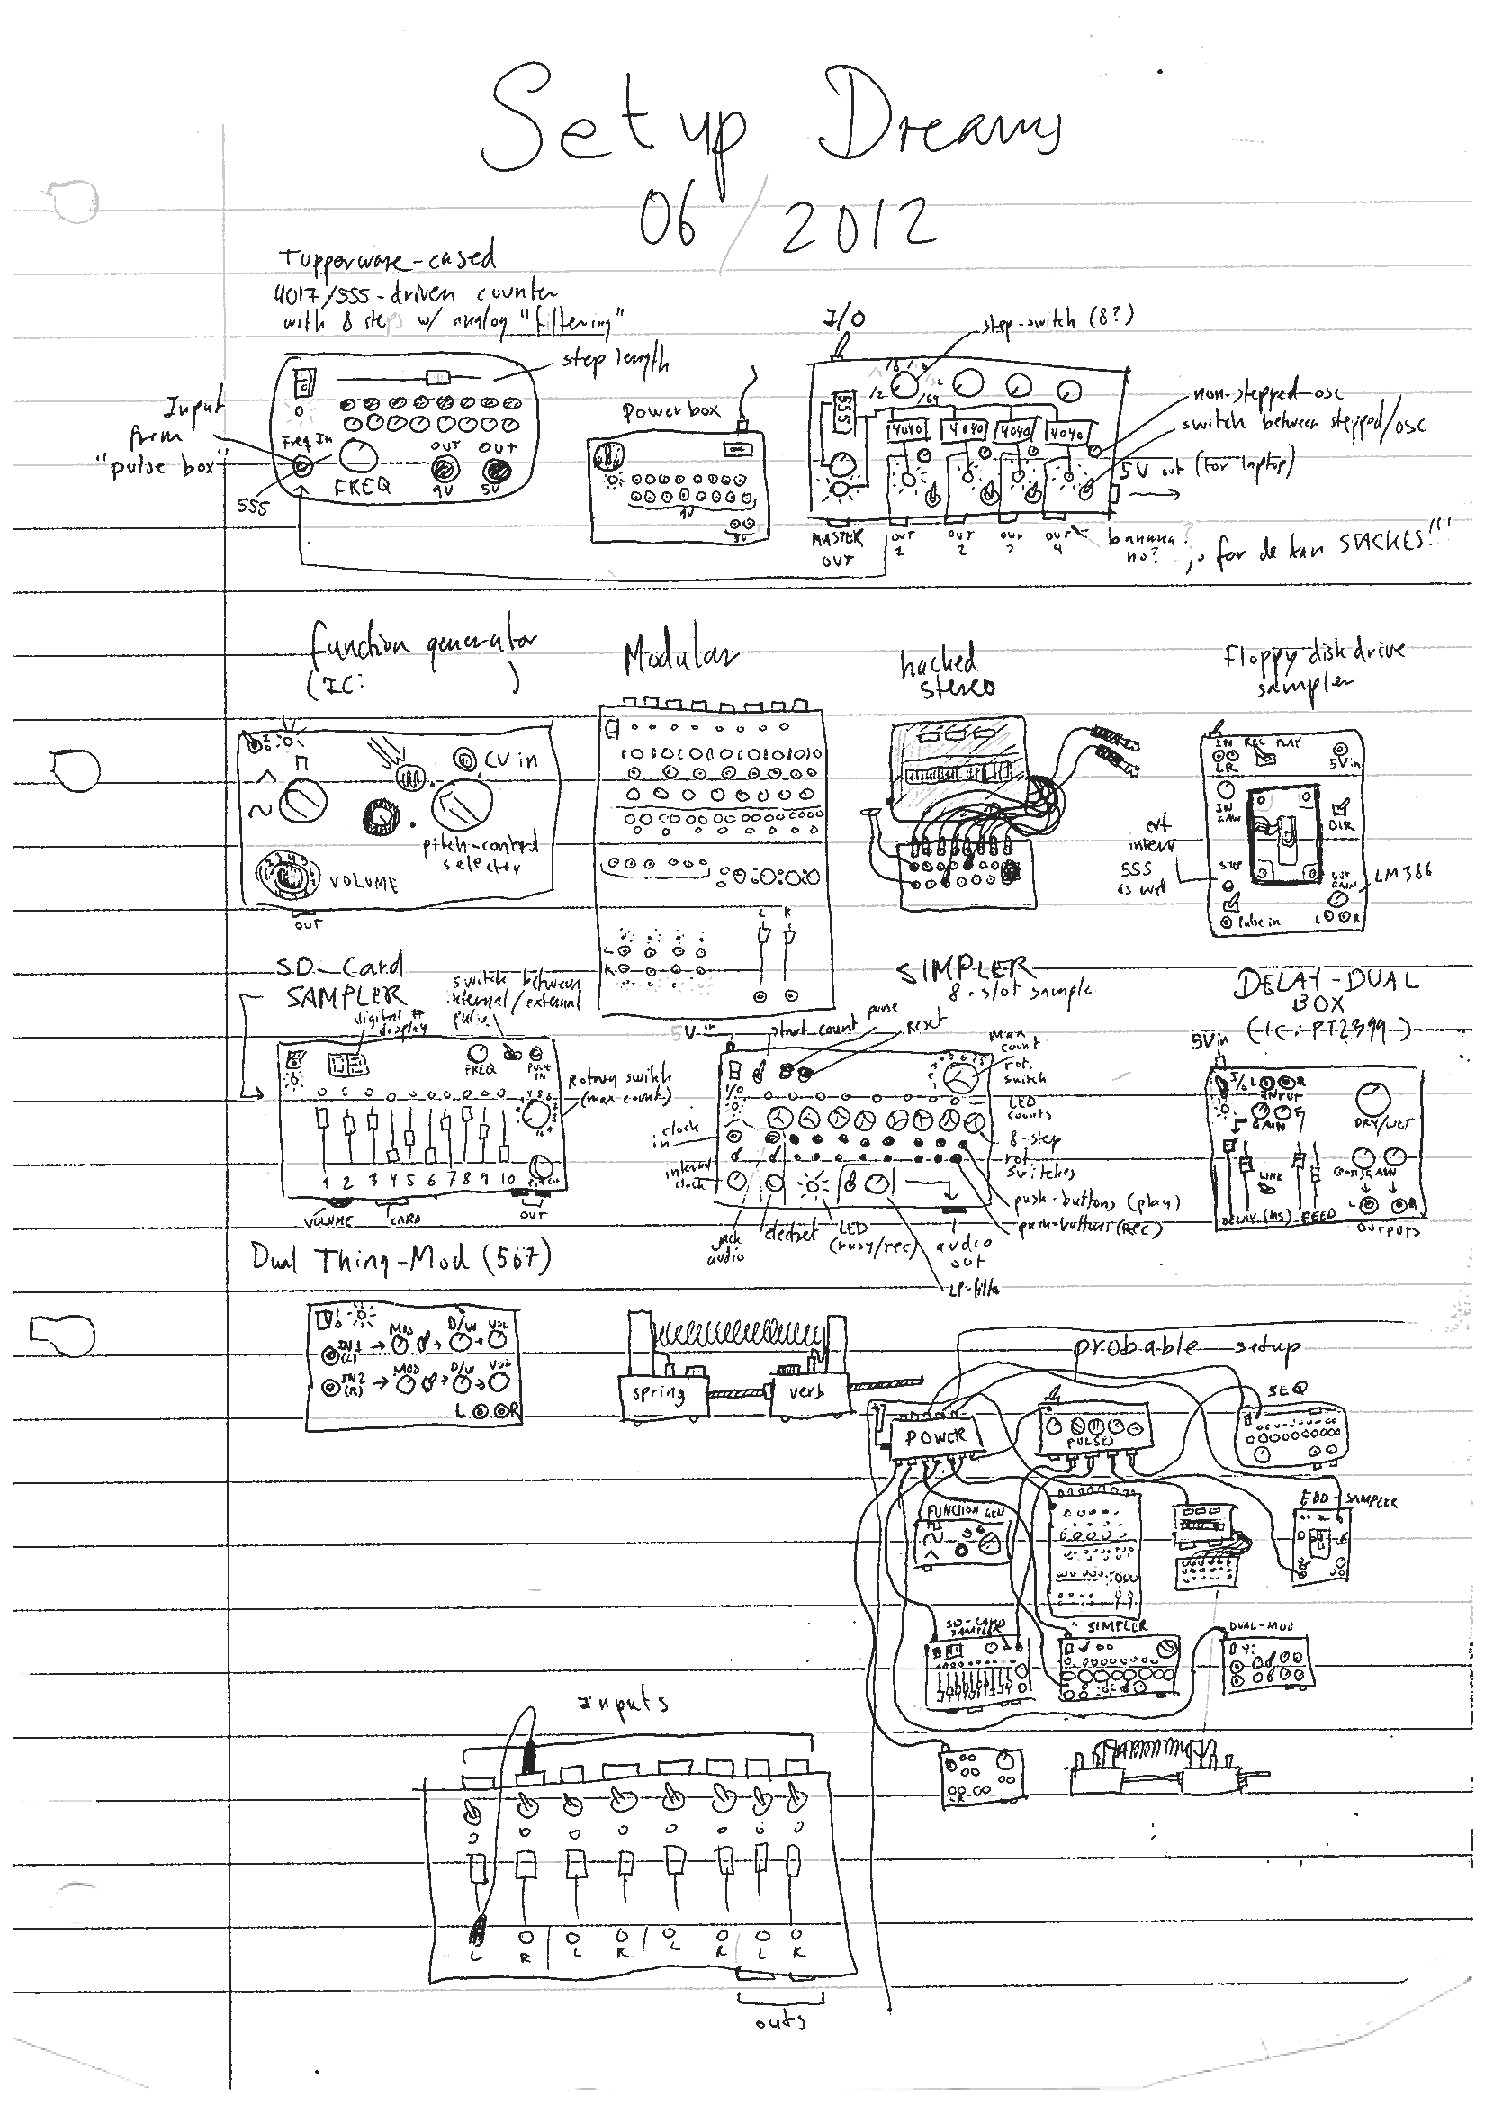 Setup Dreams
06/2012
Tupperware-cased
4017/555-driven counter
with 8 steps w/ analog "filtering"
step length
Input
from
"pulse box"
Freq In
555
FREQ
OUT
9V
OUT
5V
Power box
9V
5V
I/O
step-switch (8?)
/2
/64
555
4040
4040
4040
4040
non-stepped osc
switch between stepped/osc
5V out (for laptop)
MASTER
OUT
OUT
1
OUT
2
OUT
3
OUT
4
banana?
no?
jo for de kan STACKES!!!
function generator
(IC: )
CV in
pitch-control
selector
VOLUME
OUT
Modular
L R
L
R
hacked
stereo
Floppy disk drive
sampler
IN
L R
REC PLAY
5V in
IN
GAIN
DIR
STEP
OUT
GAIN
LM386
Pulse in
L R
555
SD-Card
SAMPLER
digital #
display
switch between
internal/external
pulse
FREQ
PULSE
IN
Rotary switch
(max count)
1 2 3 4 5 6 7 8 9 10
VOLUME
CARD
OUT
SIMPLER
8-slot sample
5V in
start count
pause
reset
max
count
rot.
switch
I/O
LED
counts
clock
in
8-step
rot
switches
internal
clock
push-buttons (play)
push-buttons (rec)
jack
audio
electret
LED
(busy/rec)
audio
out
LP-filter
DELAY-DUAL
BOX
(IC: PT2399)
5Vin
I/O
L R
INPUT
GAIN
DRY/WET
LINK
GAIN
DELAY (MS)
FEED
L R
OUTPUTS
Dual Thing-Mod (567)
IN 1
(L)
MOD
D/W
VOL
IN 2
(R)
MOD
D/W
VOL
L R
spring
verb
probable setup
POWER
PULSES
SEQ
FUNCTION GEN
FDD-SAMPLER
SD-CARD
SAMPLER
SIMPLER
DUAL-MOD
Inputs
L R L R L R L R
outs